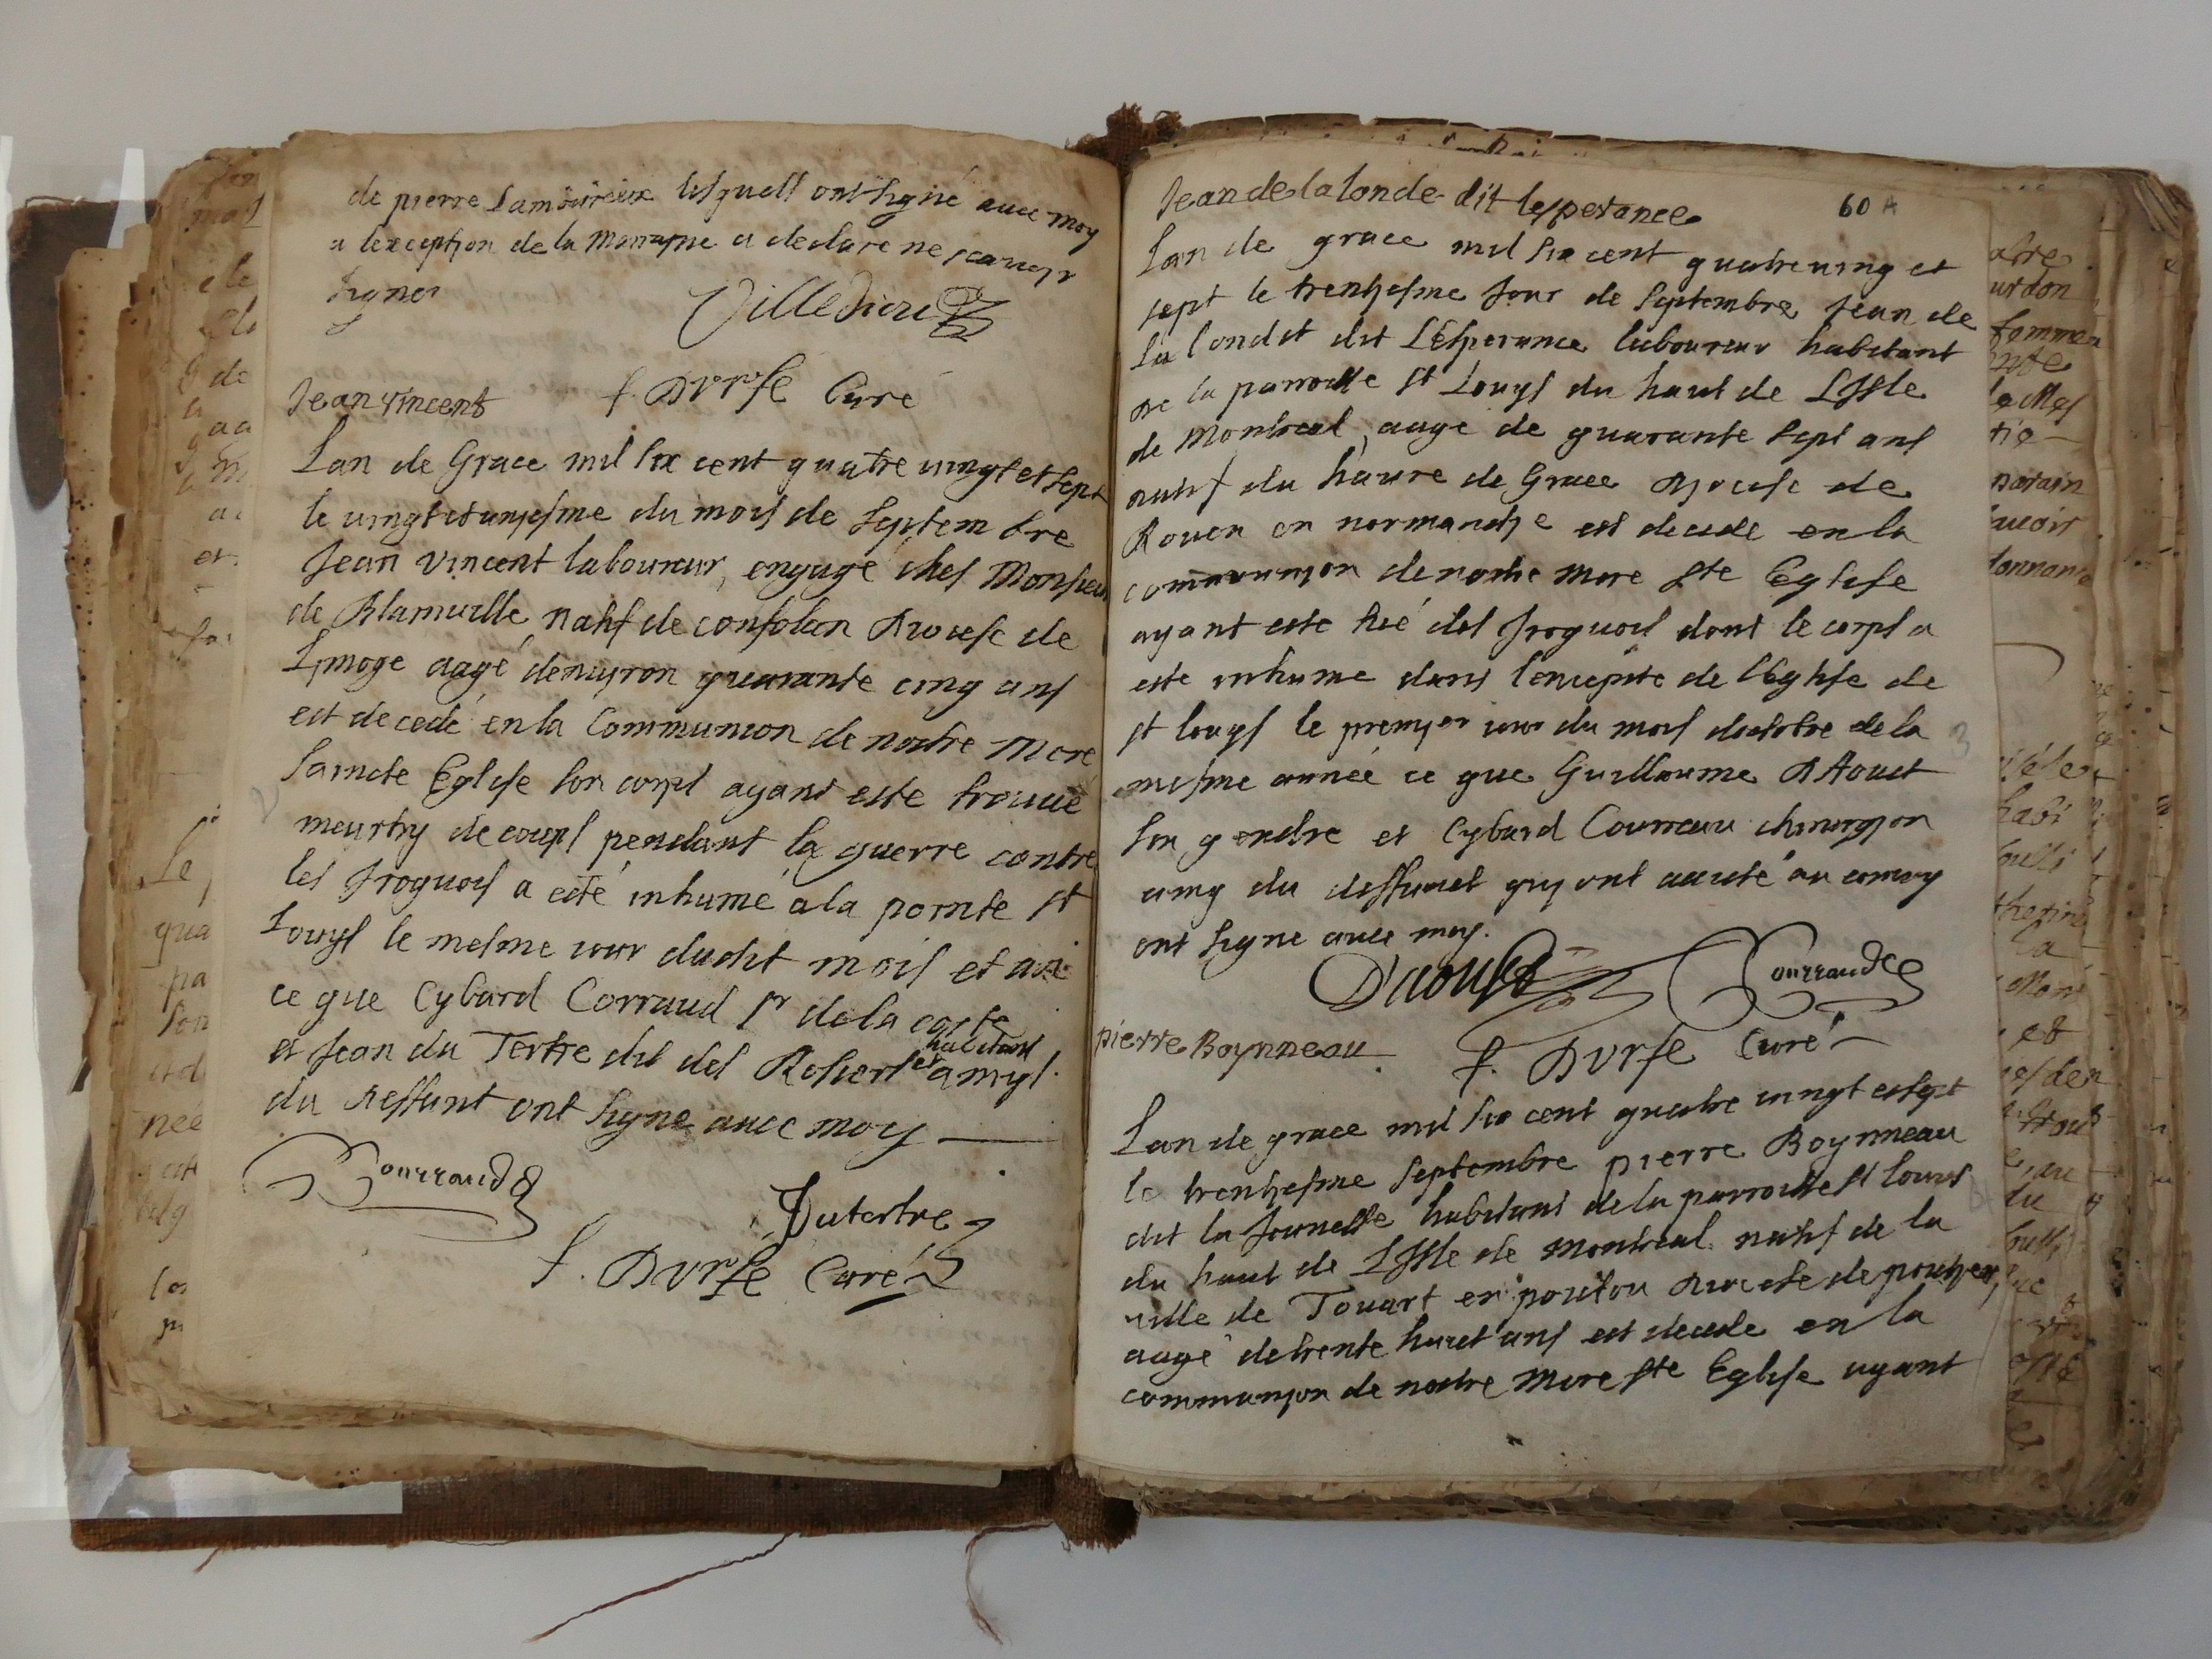 de pierre Lamoureux lesquels ont signé auec moy
a lexception de la Marrayne a declare ne scauoyr
signer
Villedieu
f. Durfe Curé
Jean vincent
Lan de Grace mil six cent quatre uingt et sept
le uingt et unyesme du mois de Septem bre
Jean Vincent laboureur, engagé ches Monsieur
de Blainuille natif de confolan Diocese de
Lymoge aagé denuyron quarante cinq ans
est decedé en la Communion de nostre Mere
Saincte Eglise son corps ayant este trouué
meurtry de coups pendant la guerre contre
les Iroquois a esté inhumé a la pointe st
Louys le mesme iour dudit mois et an
ce que Cybard Corraud sr de la coste
et Jean du Tertre dit des Rosiers habitans
et amys
du deffunt ont signe auec moy
Courraud
Dutertre
f. Durfé Curé
Jean de la londe dit lesperance
60 A
Lan de grace mil six cent quatre uing et
sept le trentyesme Jour de Septembre Jean de
La londe dit LEsperance laboureur habitant
de la parroisse st Louys du haut de LIsle
de Montreal aagé de quarante sept ans
natif du haure de Grace Dyocese de
Rouen en normandye est decede en la
communyon de nostre mere Ste Eglise
ayant este tué des Iroquois dont le corps a
este inhume dans l'enceynte de lEglise de
st louys le premyer iour du mois doctobre de la
mesme année ce que Guillaume DAoust
son gendre et Cybard Courraux chirurgyon
amy du deffunct quy ont assisté au conuoy
ont signe auec moy.
D'aoust
Courraud
pierre Boynneau
f. Durfe Curé
Lan de grace mil six cent quatre uingt et sept
le trentyesme Septembre pierre Boynneau
dit la Jeunesse habitant de la parroisse st louis
du haut de LIsle de Montreal natif de la
uille de Touart en poictou Diocese de poitiers,
aagé de trente huict ans est decede en la
communyon de nostre mere ste Eglise ayant